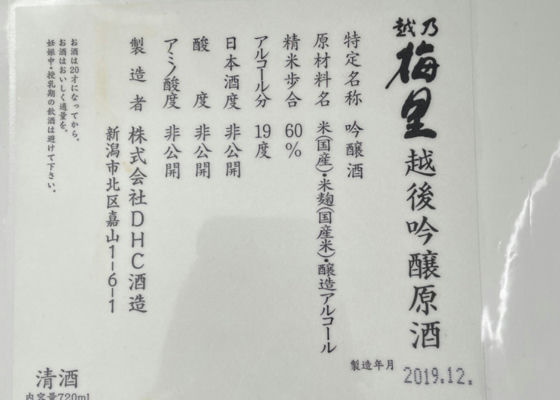 越乃
梅里 越後吟醸原酒
特定名称 吟醸酒
原材料名 米(国産)・米麹(国産米)・醸造アルコール
精米歩合 60%
アルコール分 19度
日本酒度 非公開
酸度 非公開
アミノ酸度 非公開
製造者 株式会社DHC酒造
新潟市北区嘉山1-6-1
お酒は20才になってから。
お酒はおいしく適量を。
妊娠中・授乳期の飲酒は避けて下さい。
製造年月 2019.12.
清酒
内容量720ml